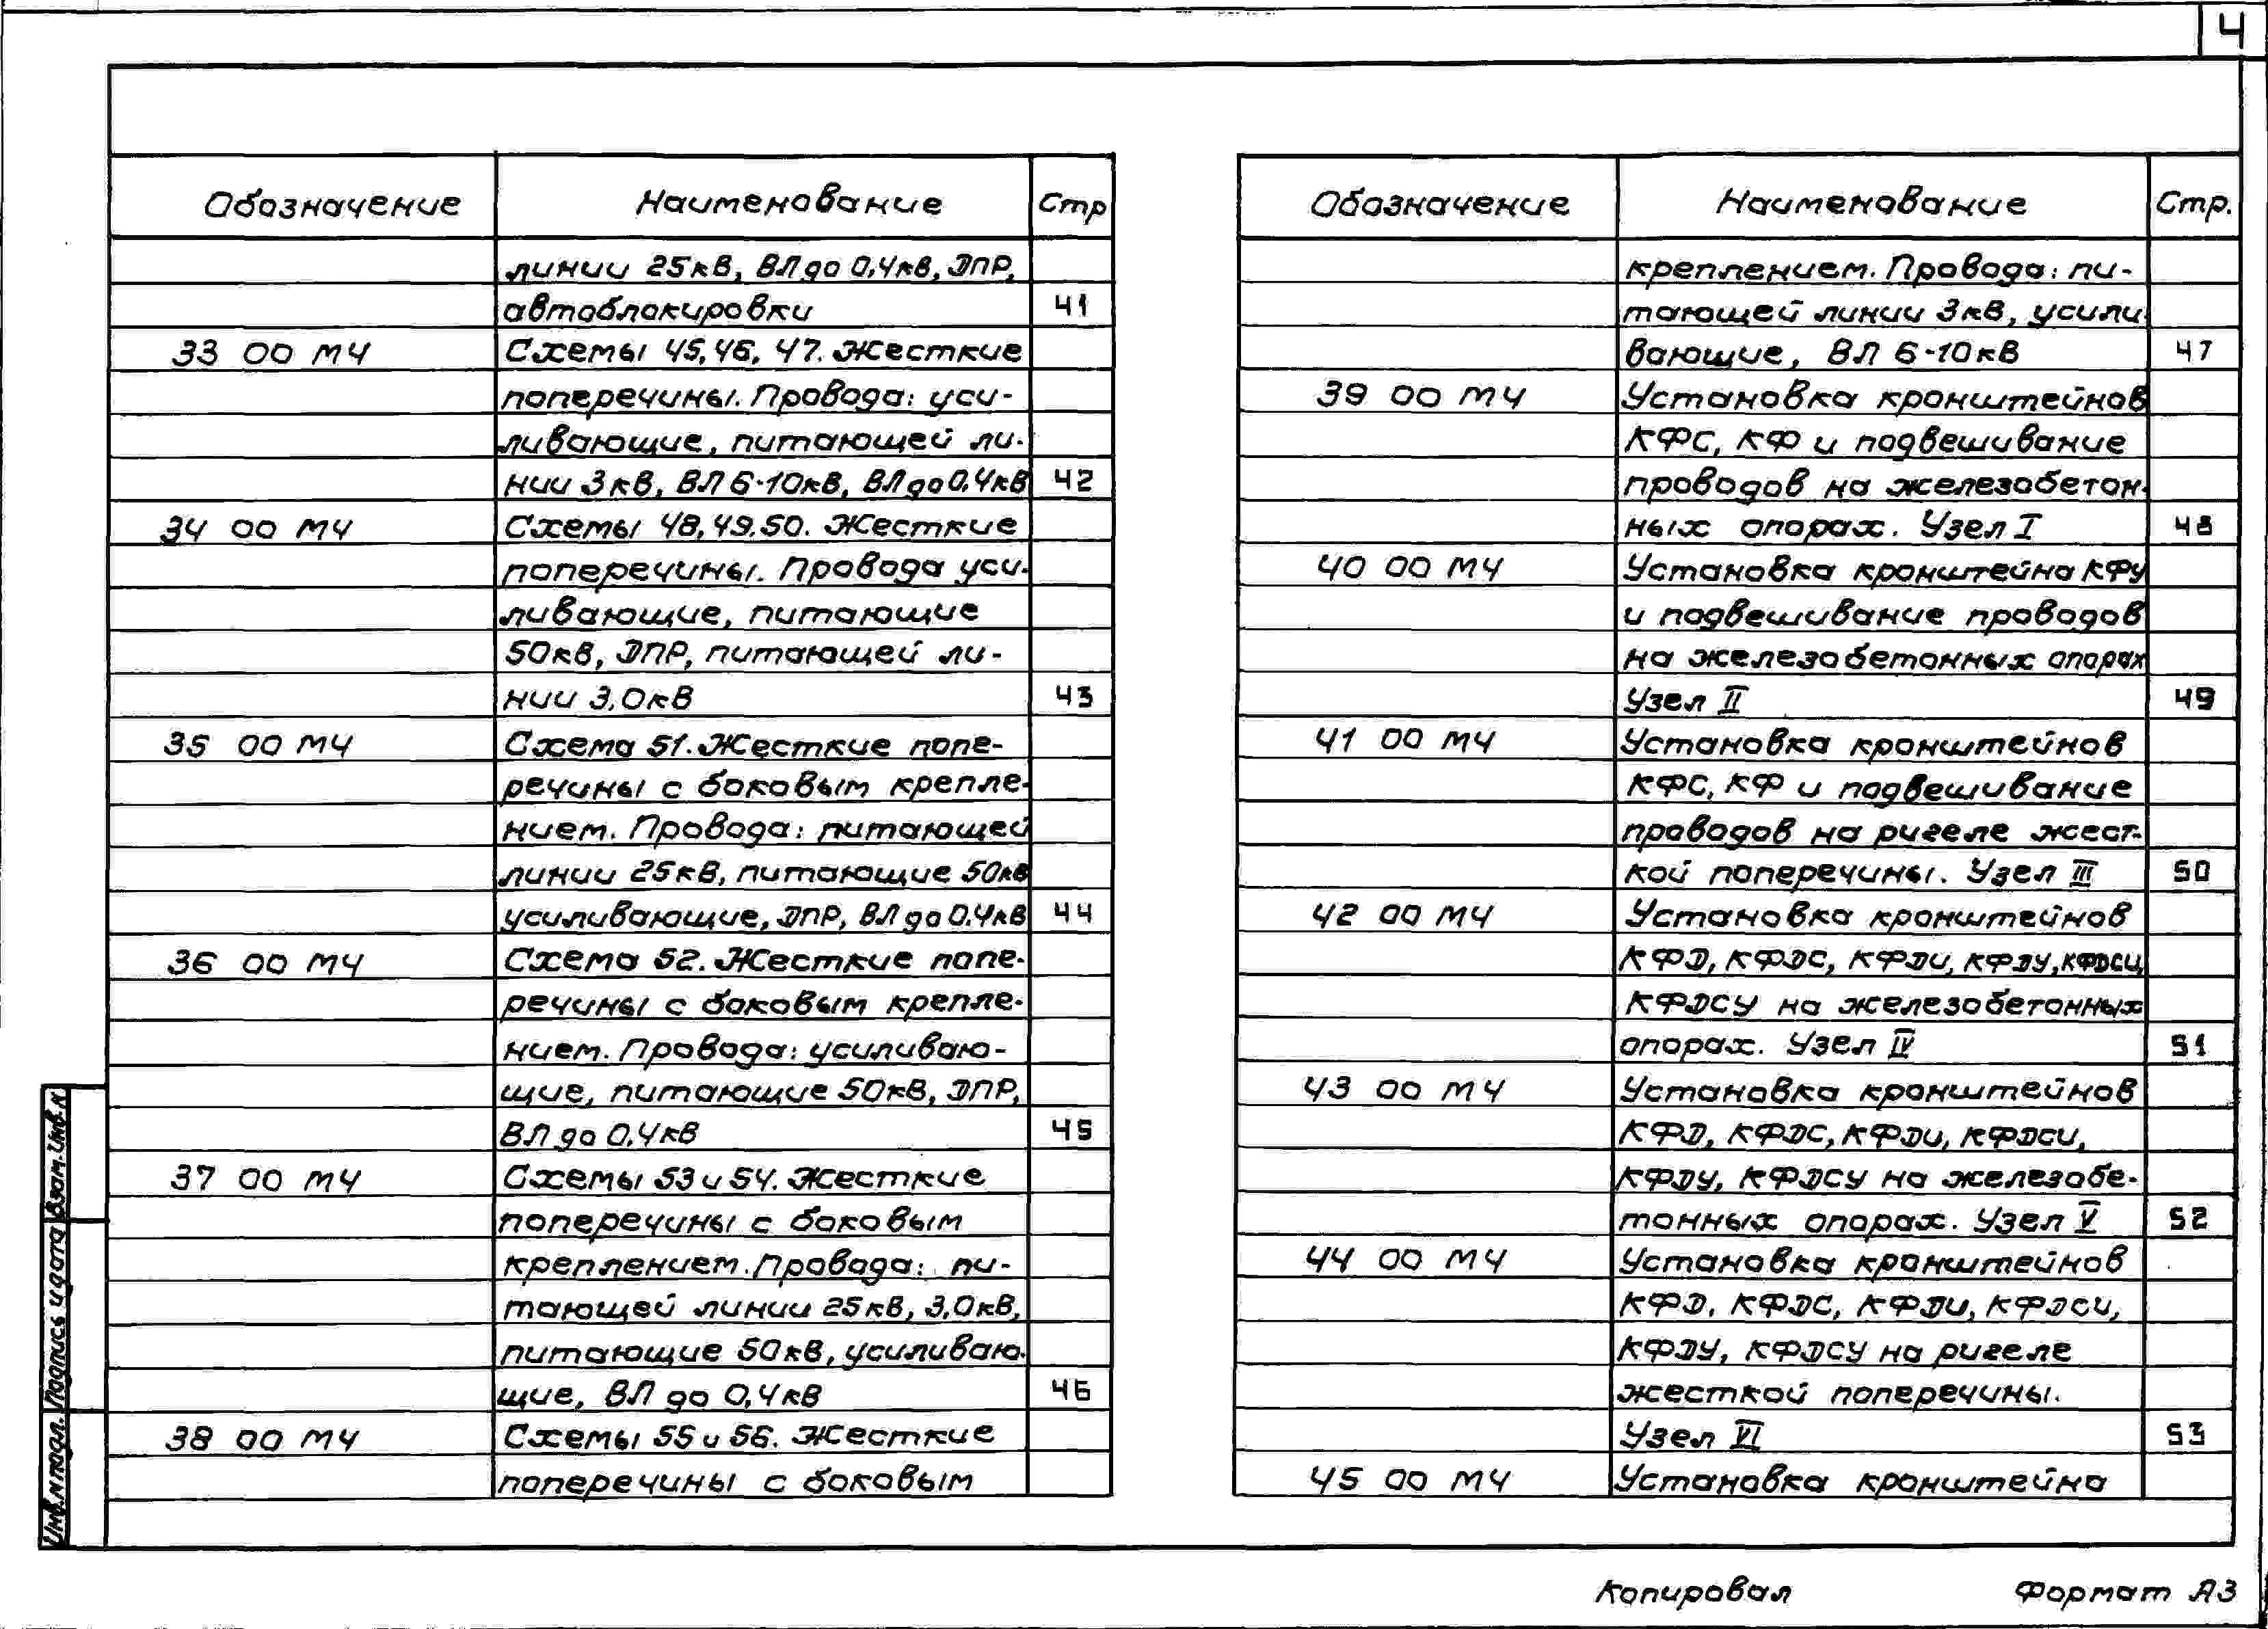 4
Обозначение Наименование Стр
линии 25кВ, ВЛ до 0,4кВ, ДПР,
автоблокировки 41
33 00 МЧ Схемы 45, 46, 47. Жесткие
поперечины. Провода: уси-
ливающие, питающей ли-
нии 3кВ, ВЛ 6-10кВ, ВЛ до 0,4кВ 42
34 00 МЧ Схемы 48, 49, 50. Жесткие
поперечины. Провода уси-
ливающие, питающие
50кВ, ДПР, питающей ли-
нии 3,0кВ 43
35 00 МЧ Схема 51. Жесткие попе-
речины с боковым крепле-
нием. Провода: питающей
линии 25кВ, питающие 50кВ
усиливающие, ДПР, ВЛ до 0,4кВ 44
36 00 МЧ Схема 52. Жесткие попе-
речины с боковым крепле-
нием. Провода: усиливаю-
щие, питающие 50кВ, ДПР,
ВЛ до 0,4кВ 45
37 00 МЧ Схемы 53 и 54. Жесткие
поперечины с боковым
креплением. Провода: пи-
тающей линии 25кВ, 3,0кВ,
питающие 50кВ, усиливаю-
щие, ВЛ до 0,4кВ 46
38 00 МЧ Схемы 55 и 56. Жесткие
поперечины с боковым
Обозначение Наименование Стр.
креплением. Провода: пи-
тающей линии 3кВ, усили-
вающие, ВЛ 6-10кВ 47
39 00 МЧ Установка кронштейнов
КФС, КФ и подвешивание
проводов на железобетон-
ных опорах. Узел I 48
40 00 МЧ Установка кронштейна КФУ
и подвешивание проводов
на железобетонных опорах
Узел II 49
41 00 МЧ Установка кронштейнов
КФС, КФ и подвешивание
проводов на ригеле жест-
кой поперечины. Узел III 50
42 00 МЧ Установка кронштейнов
КФД, КФДС, КФДИ, КФДУ, КФДСИ,
КФДСУ на железобетонных
опорах. Узел IV 51
43 00 МЧ Установка кронштейнов
КФД, КФДС, КФДИ, КФДСИ,
КФДУ, КФДСУ на железобе-
тонных опорах. Узел V 52
44 00 МЧ Установка кронштейнов
КФД, КФДС, КФДИ, КФДСИ,
КФДУ, КФДСУ на ригеле
жесткой поперечины.
Узел VI 53
45 00 МЧ Установка кронштейна
Инв.N подл. Подпись и дата Взам.инв.N
Копировал Формат А3